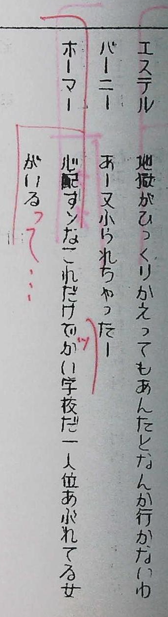 エステル　地獄がひっくりかえってもあんたとなんか行かないわ
バーニー　あー又ふられちゃったー
ホーマー　心配すンなこれだけでッかい学校だ一人位あぶれてる女
がいるって…